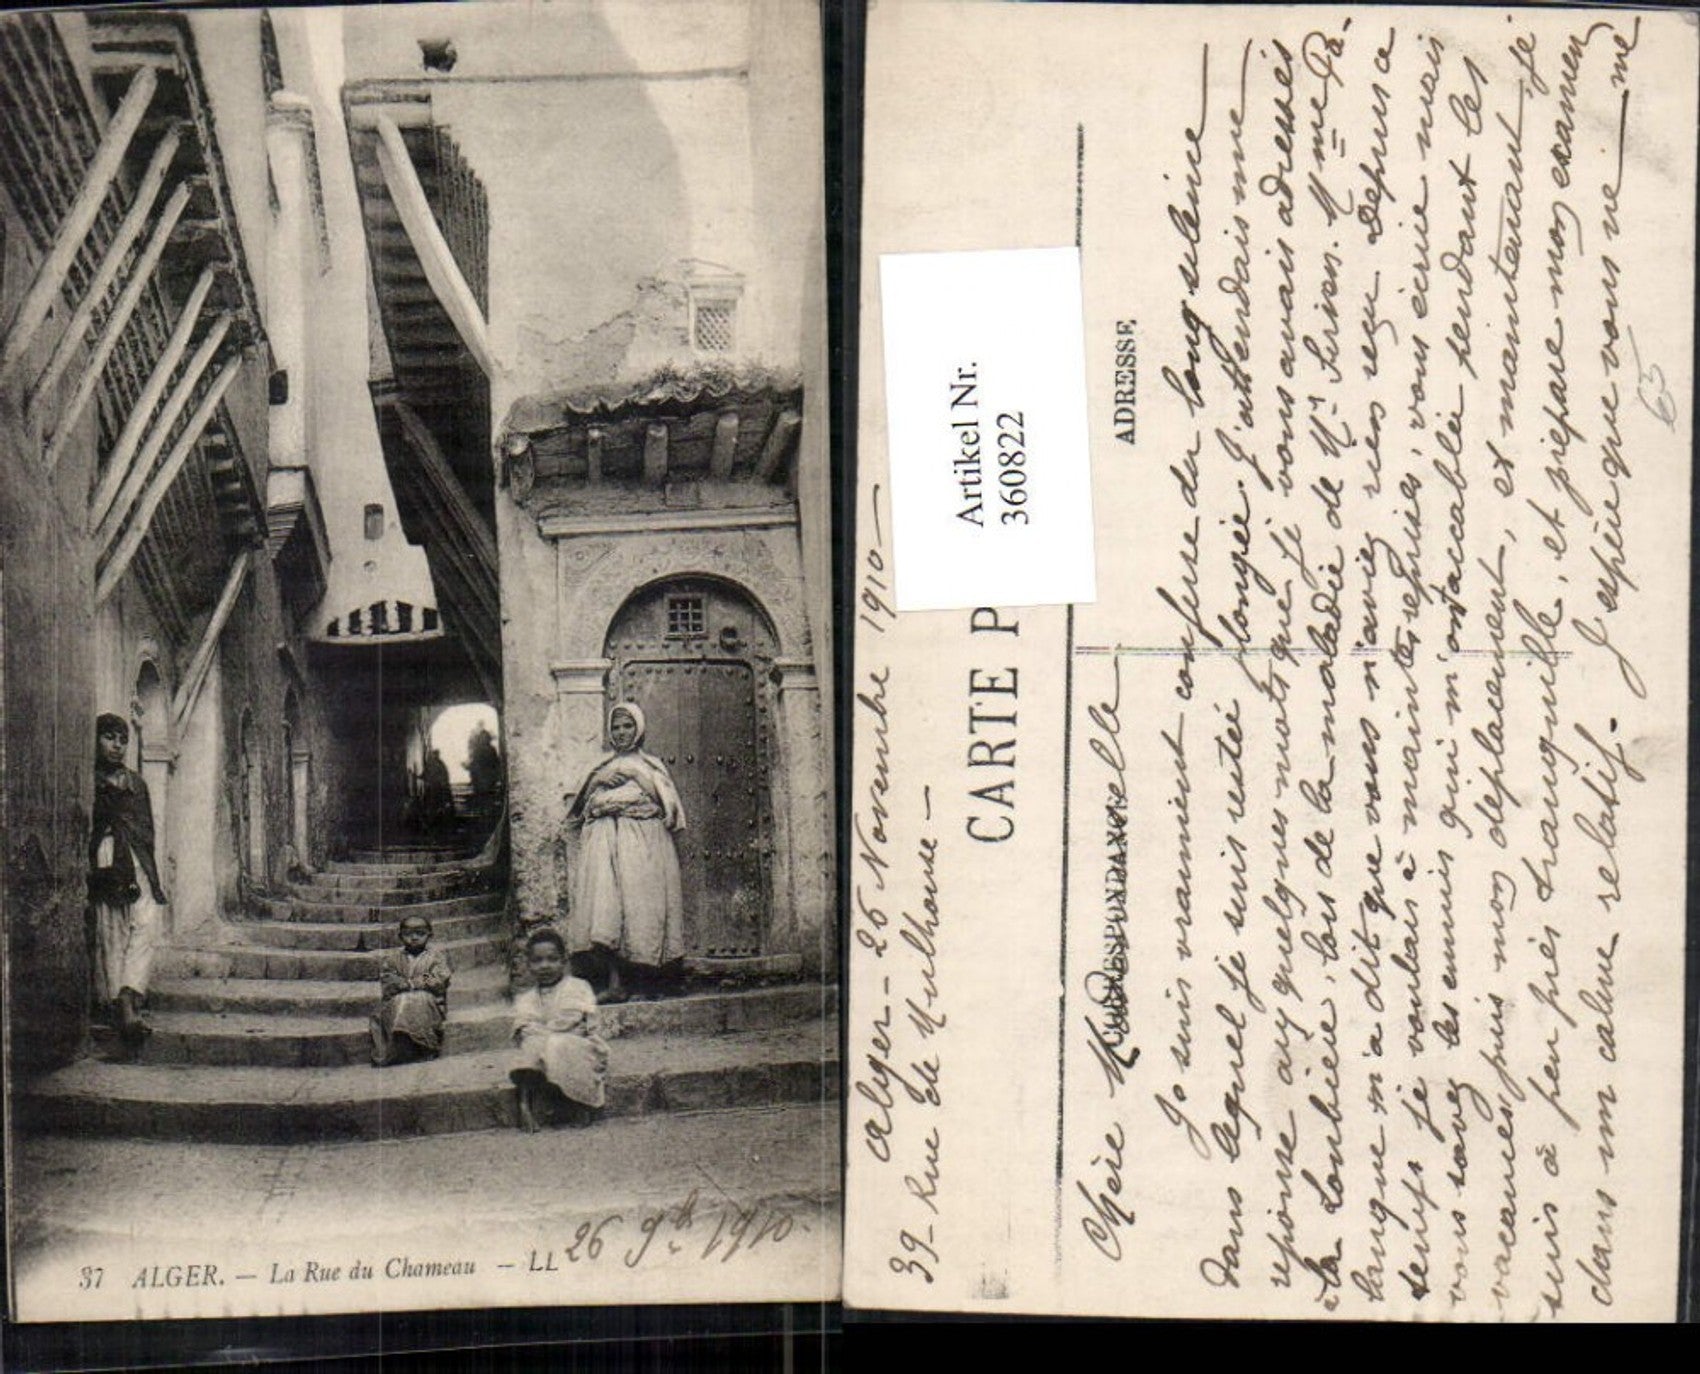 37 ALGER. — La Rue du Chameau — LL
26 9bre 1910.
Alger - 26 Novembre 1910 -
39 - Rue de Mulhouse -
CARTE P
Artikel Nr.
360822
CORRESPONDANCE
ADRESSE
Chère Mademoiselle
Je suis vraiment confuse du long silence
dans lequel je suis restée plongée. J'attendais une
réponse aux quelques mots que je vous avais adressés
à la Loubière, lors de la maladie de Mr
langue m'a dit que vous n'aviez rien reçu depuis ce
temps je voulais à maintes reprises, vous écrire mais
vous savez les ennuis qui m'ont accablée pendant les
vacances, puis mon déplacement, et maintenant, je
suis à peu près tranquille, et prépare mon examen
dans un calme relatif. J'espère que vous ne me
63